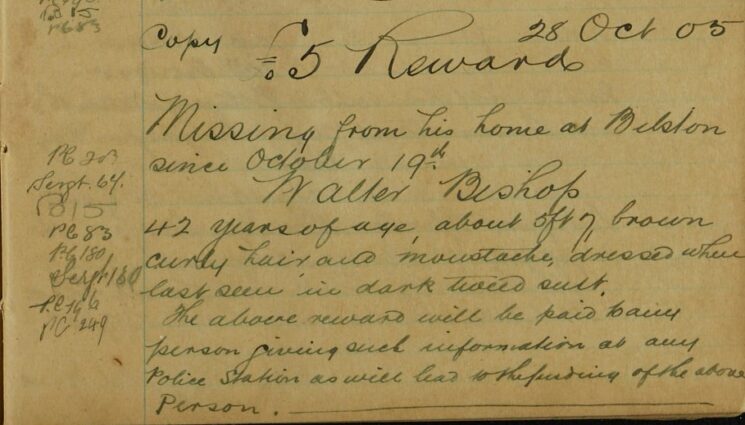 PC83
Copy
28 Oct 05
£5 Reward
Missing from his home at Bilston
since October 19th
Walter Bishop
42 years of age, about 5ft 7, brown
curly hair and moustache, dressed when
last seen in dark tweed suit.
The above reward will be paid to any
person giving such information at any
Police Station as will lead to the finding of the above
Person.
PC 203
Sergt. 64.
PC83
PC 180
Sergt 180
PC 249